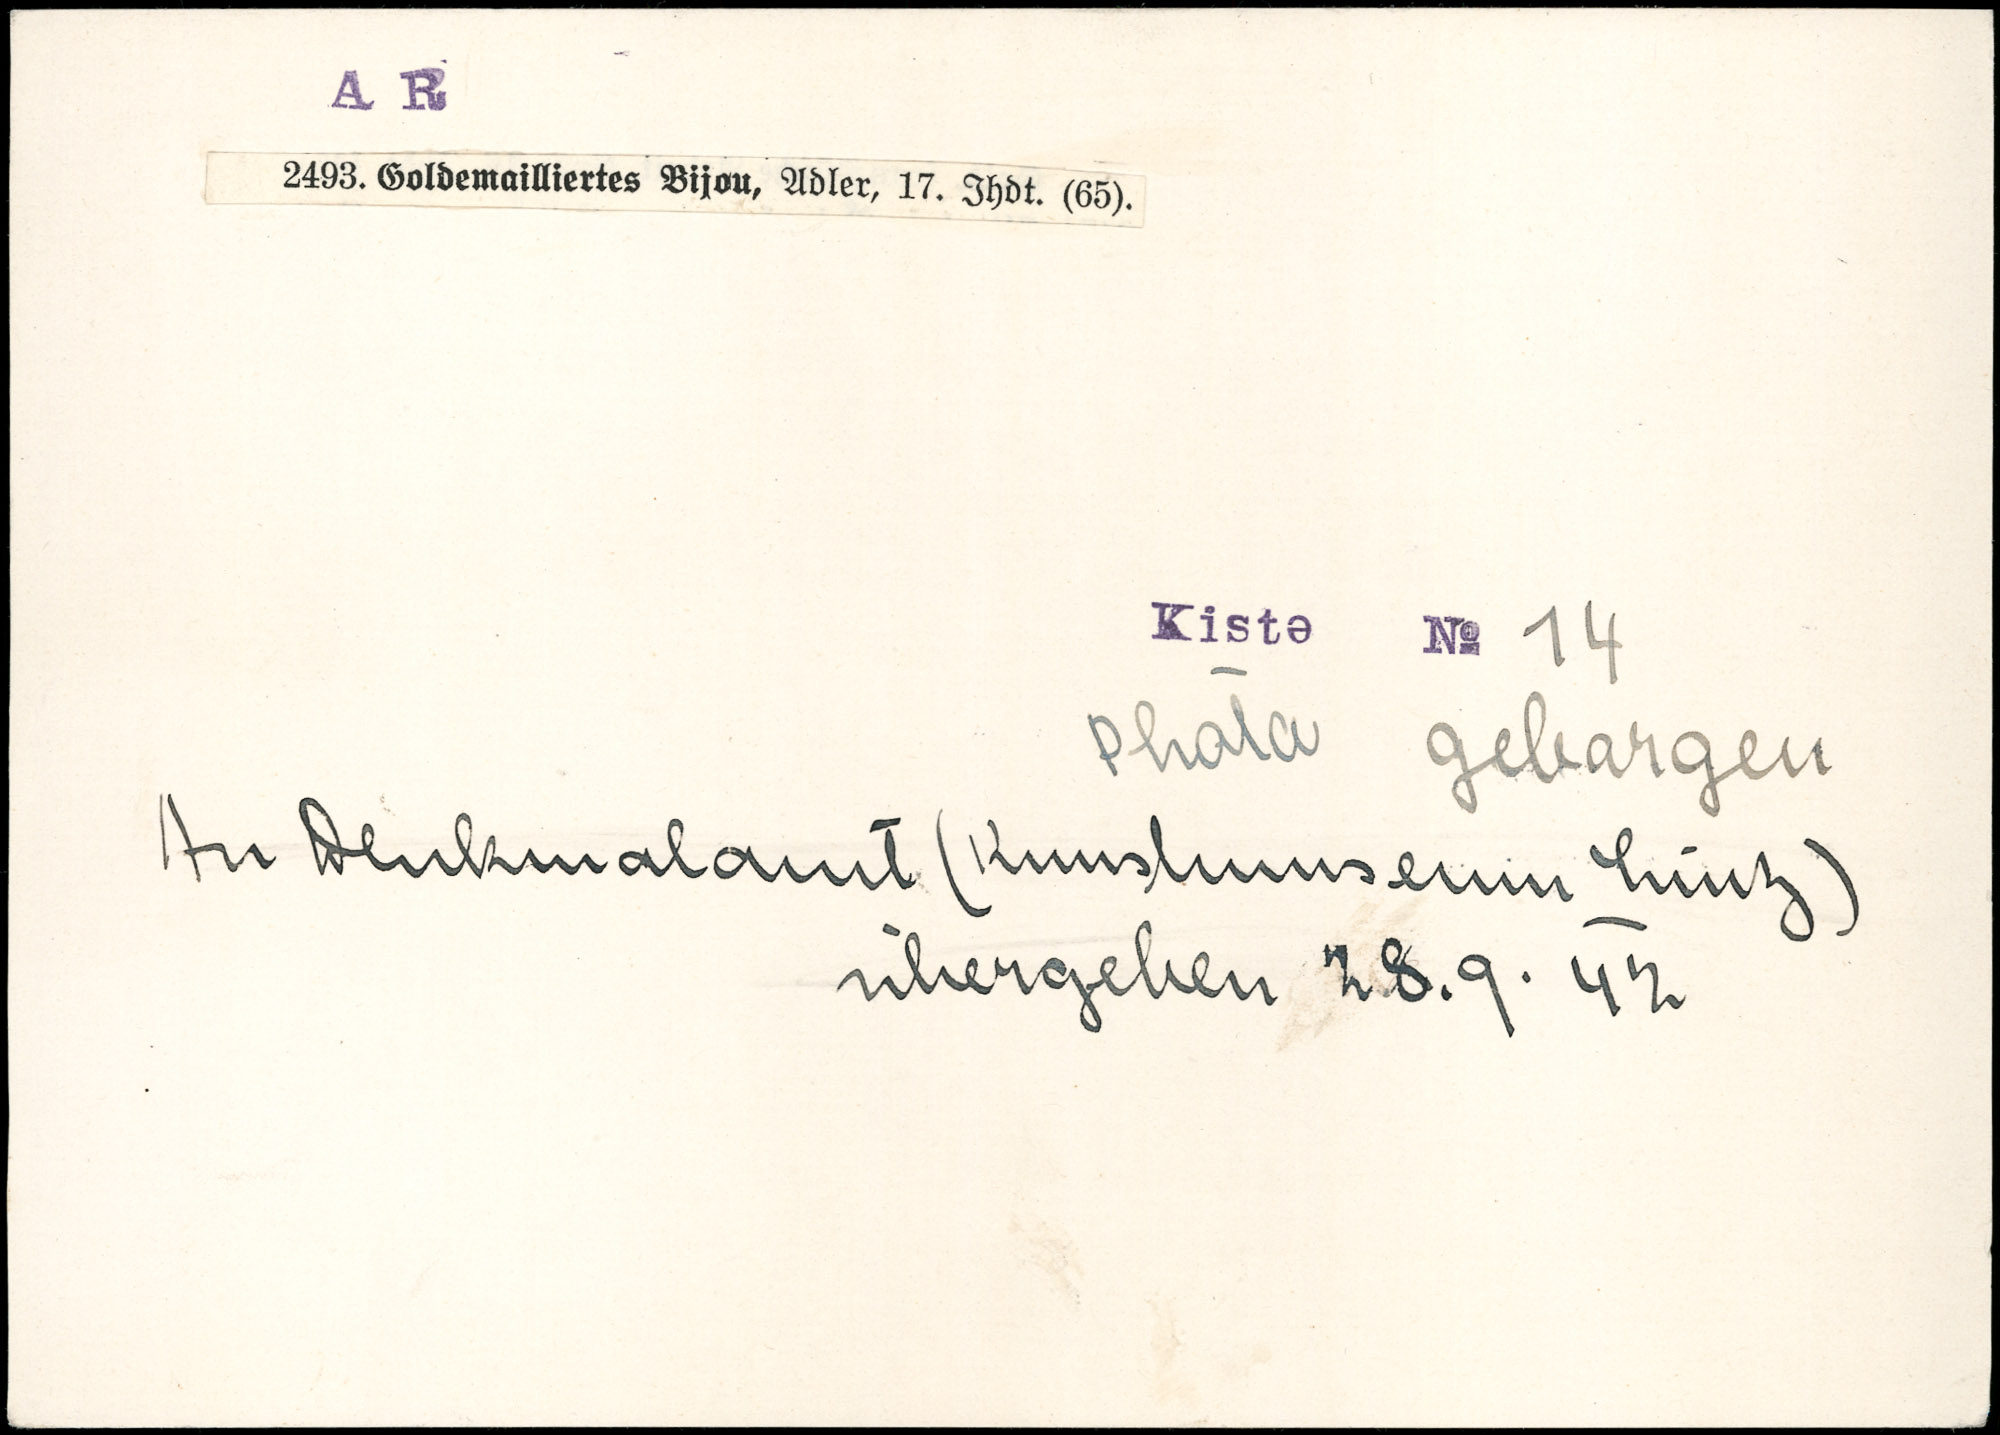 A R
2493. Goldemailliertes Bijou, Adler, 17. Jhdt. (65).
Kiste № 14
Photo geborgen
An Denkmalamt (Kunstmuseum Linz)
übergeben 28.9.42